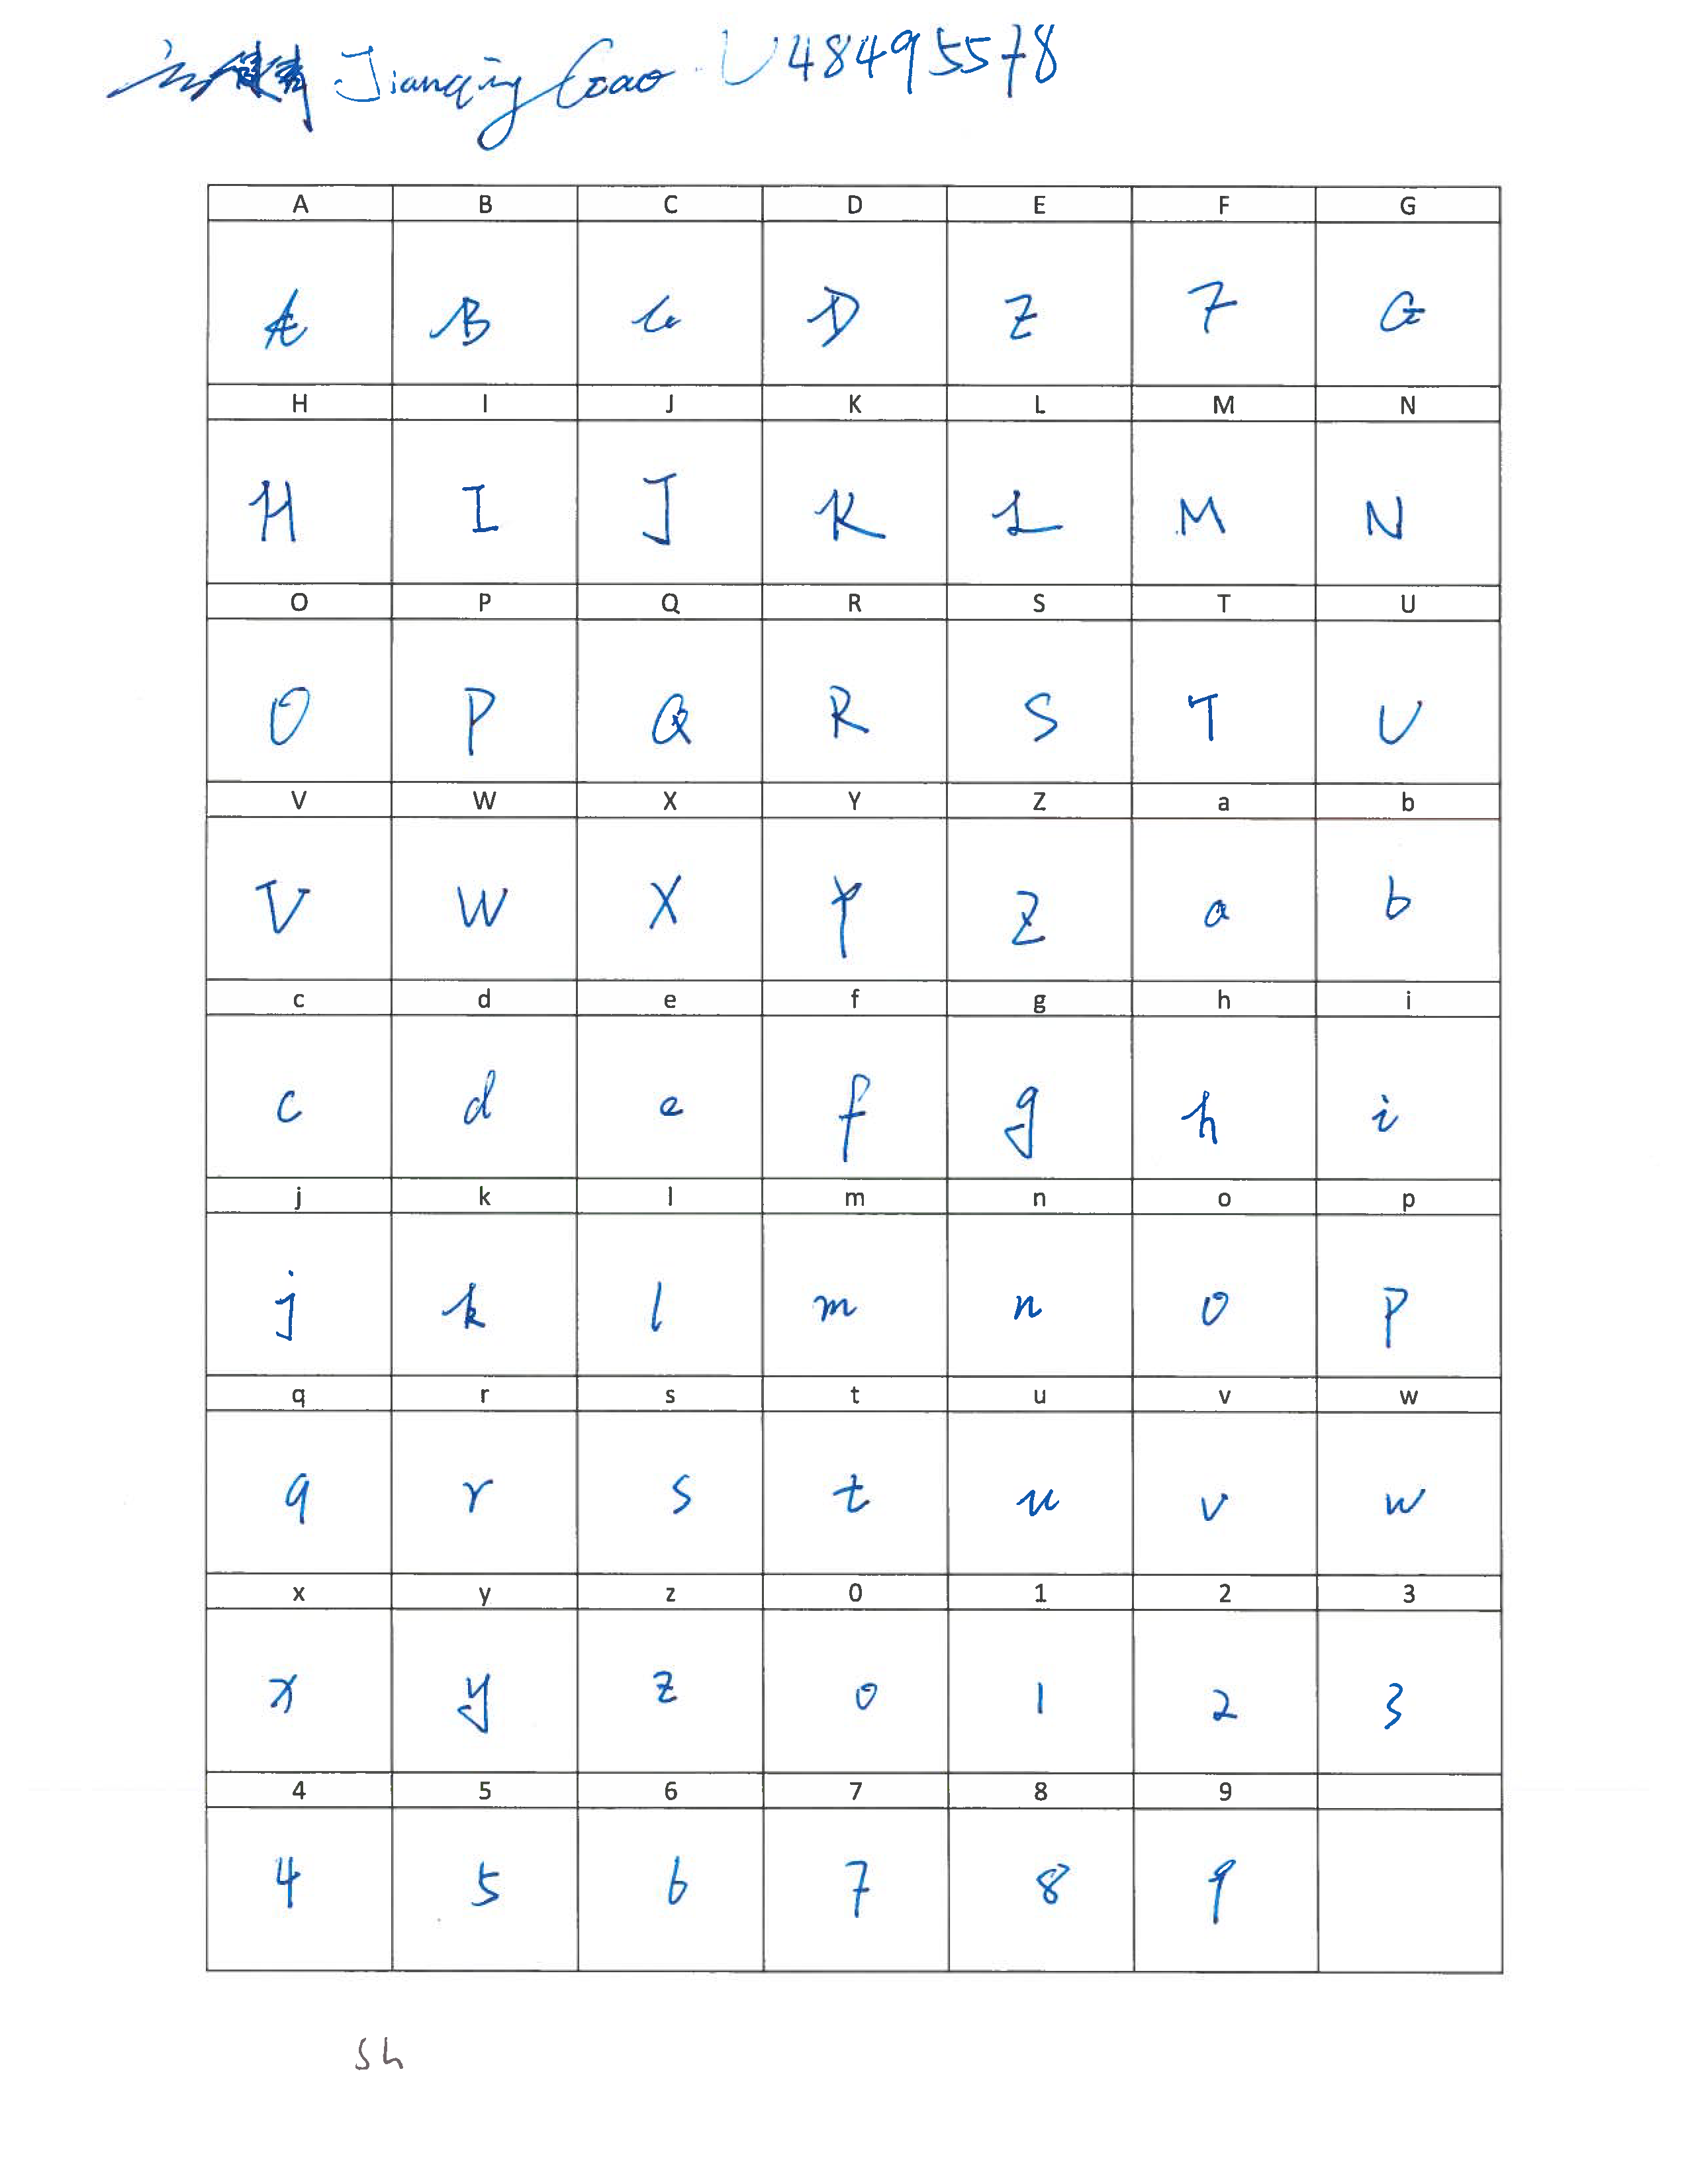 Jianqing Gao U48495578
A B C D E F G
A B C D E F G
H I J K L M N
H I J K L M N
O P Q R S T U
O P Q R S T U
V W X Y Z a b
V W X Y Z a b
c d e f g h i
c d e f g h i
j k l m n o p
j k l m n o p
q r s t u v w
q r s t u v w
x y z 0 1 2 3
x y z 0 1 2 3
4 5 6 7 8 9
4 5 6 7 8 9
Sh